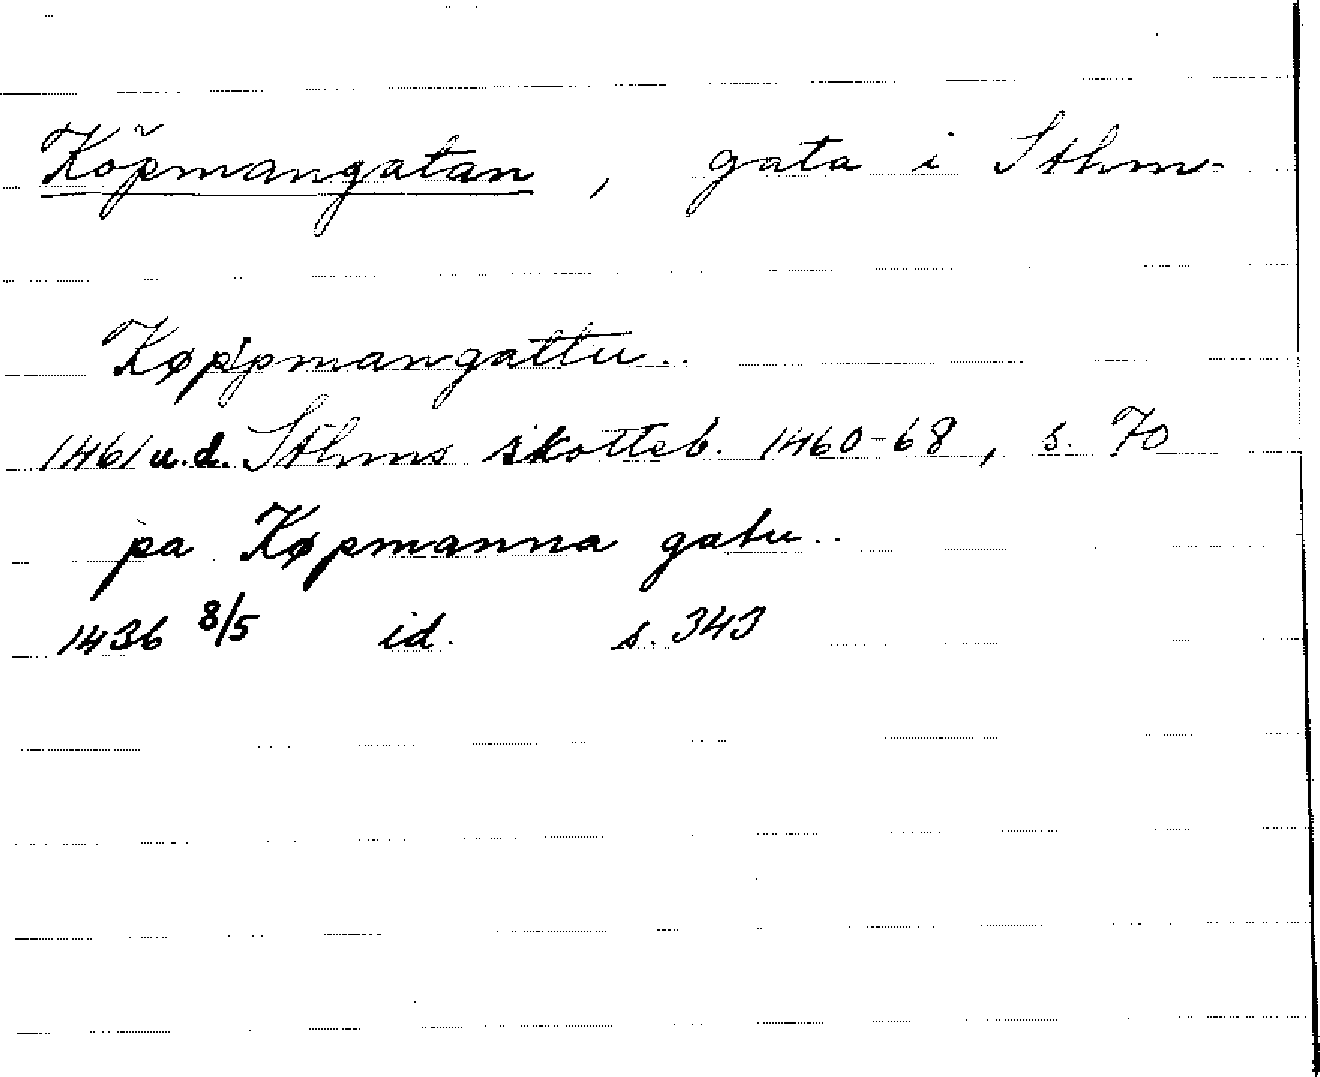 Köpmangatan, gata i Sthm.
Køppmangattu..
1461 u.d. Sthms skotteb. 1460-68, s. 70
pa Køpmanna gatu..
1436 8/5 id. s. 343